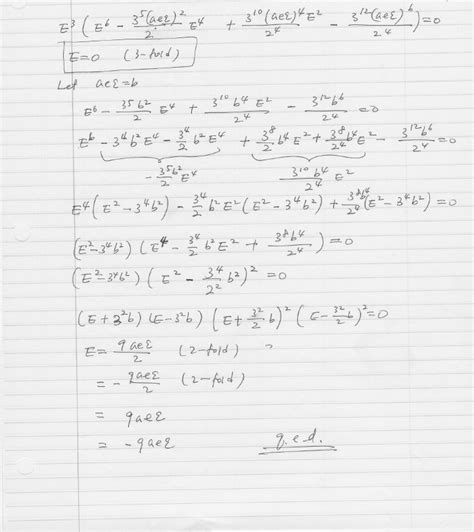 E³ ( E⁶ - 3⁵(aeξ)²/2 E⁴ + 3¹⁰(aeξ)⁴E²/2⁴ - 3¹²(aeξ)⁶/2⁴ ) = 0
E=0 (3-fold)
Let aeξ = b
E⁶ - 3⁵b²/2 E⁴ + 3¹⁰b⁴E²/2⁴ - 3¹²b⁶/2⁴ = 0
E⁶ - 3⁴b²E⁴ - 3⁴/2 b²E⁴ + 3⁸/2 b⁴E² + 3⁸/2⁴ b⁴E² - 3¹²b⁶/2⁴ = 0
- 3⁵b²/2 E⁴ 3¹⁰b⁴/2⁴ E²
E⁴(E² - 3⁴b²) - 3⁴/2 b²E²(E² - 3⁴b²) + 3⁸b⁴/2⁴ (E² - 3⁴b²) = 0
(E² - 3⁴b²) (E⁴ - 3⁴/2 b²E² + 3⁸b⁴/2⁴) = 0
(E² - 3⁴b²) (E² - 3⁴/2² b²)² = 0
(E + 3²b) (E - 3²b) (E + 3²/2 b)² (E - 3²/2 b)² = 0
E = 9aeξ/2 (2-fold)
= - 9aeξ/2 (2-fold)
= 9aeξ
= - 9aeξ q.e.d.